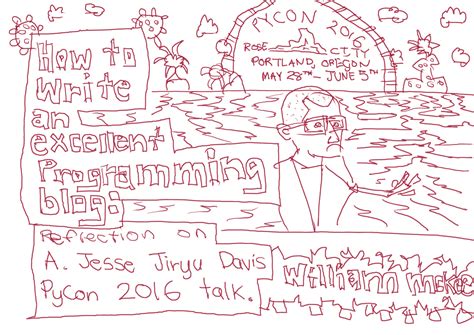 How to
Write
an
excellent
Programming
blog:
Reflection on
A. Jesse Jiryu Davis
Pycon 2016 talk.
PYCON 2016
ROSE CITY
PORTLAND, OREGON
MAY 28TH - JUNE 5TH
William McKee